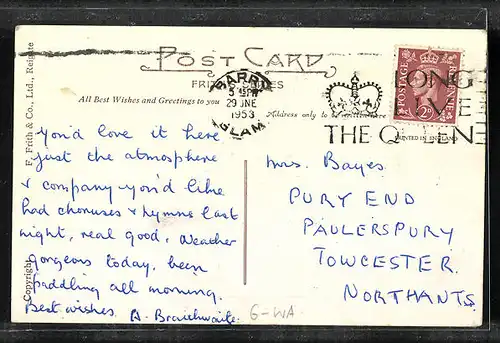 POST CARD
FRITH'S SERIES
All Best Wishes and Greetings to you
Address only to be written here
BARRY
5 15PM
29 JNE
1953
GLAM
LONG
LIVE
THE QUEEN
POSTAGE
REVENUE
2D
PRINTED IN ENGLAND
Copyright
F. Frith & Co., Ltd., Reigate
You'd love it here
just the atmosphere
& company you'd like
had choruses & hymns last
night, real good, Weather
gorgeous today, been
paddling all morning.
Best wishes. A. Braithwaite.
G-WA
Mrs. Bayes
PURY END
PAULERSPURY
TOWCESTER.
NORTHANTS.